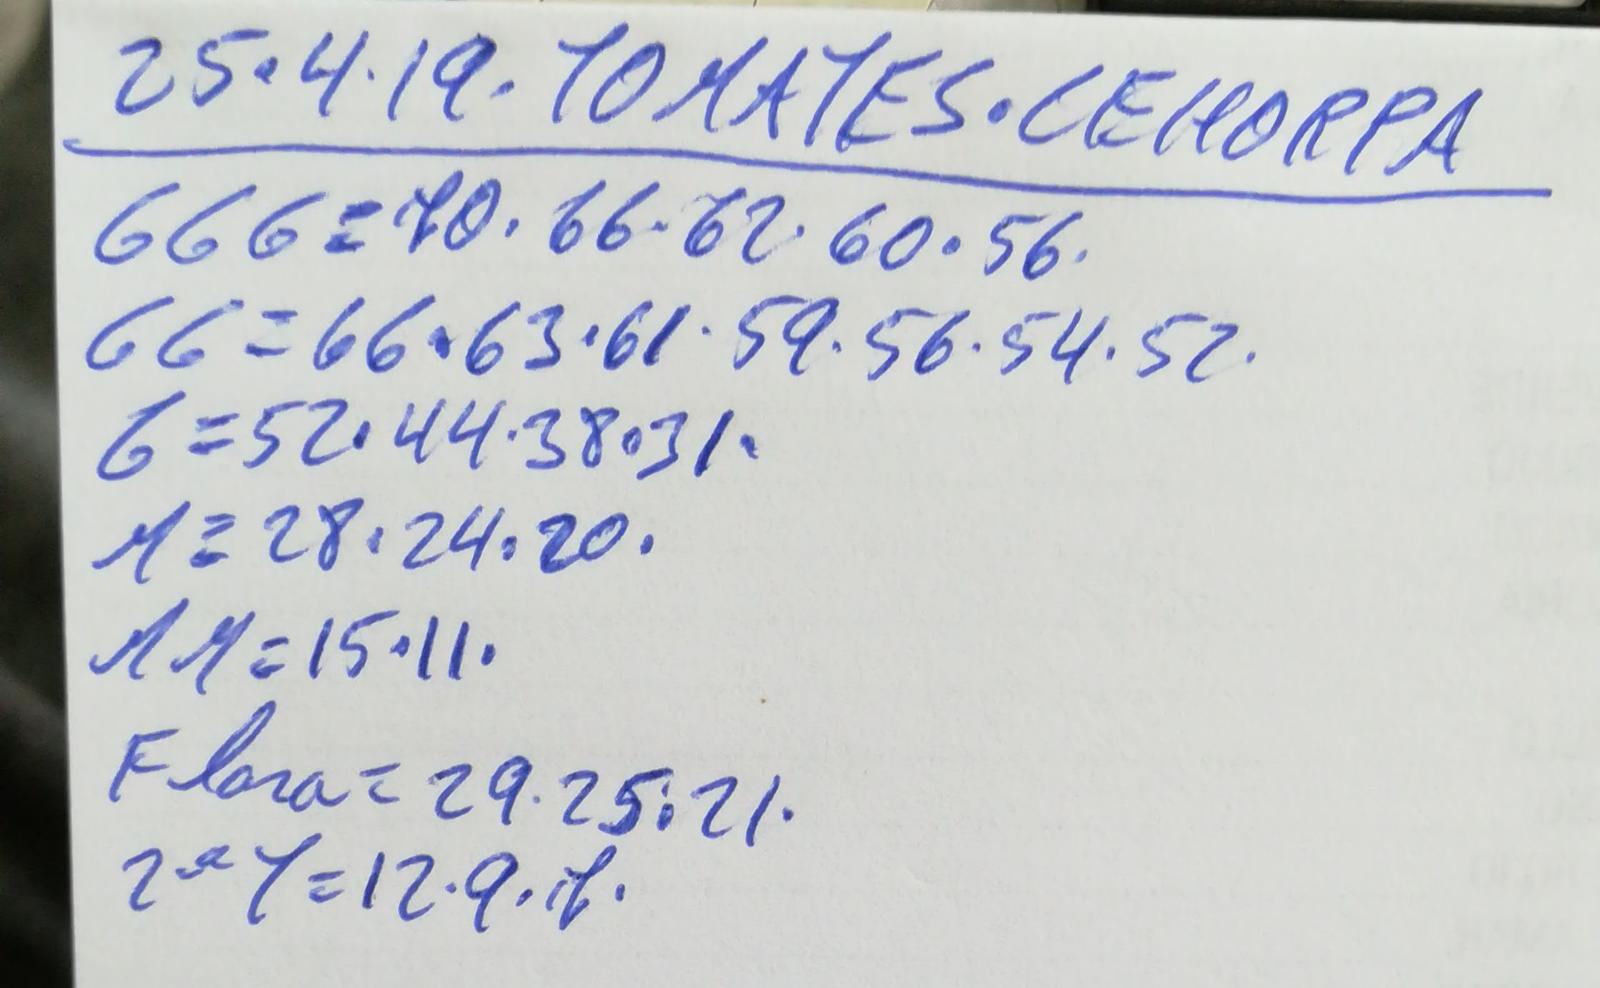 25.4.19. TOMATES. CEHORPA
GGG = 70. 66. 62. 60. 56.
GG = 66. 63. 61. 59. 56. 54. 52.
G = 52. 44. 38. 31.
M = 28. 24. 20.
MM = 15. 11.
Flora = 29. 25. 21.
2ª T = 12. 9. 7.